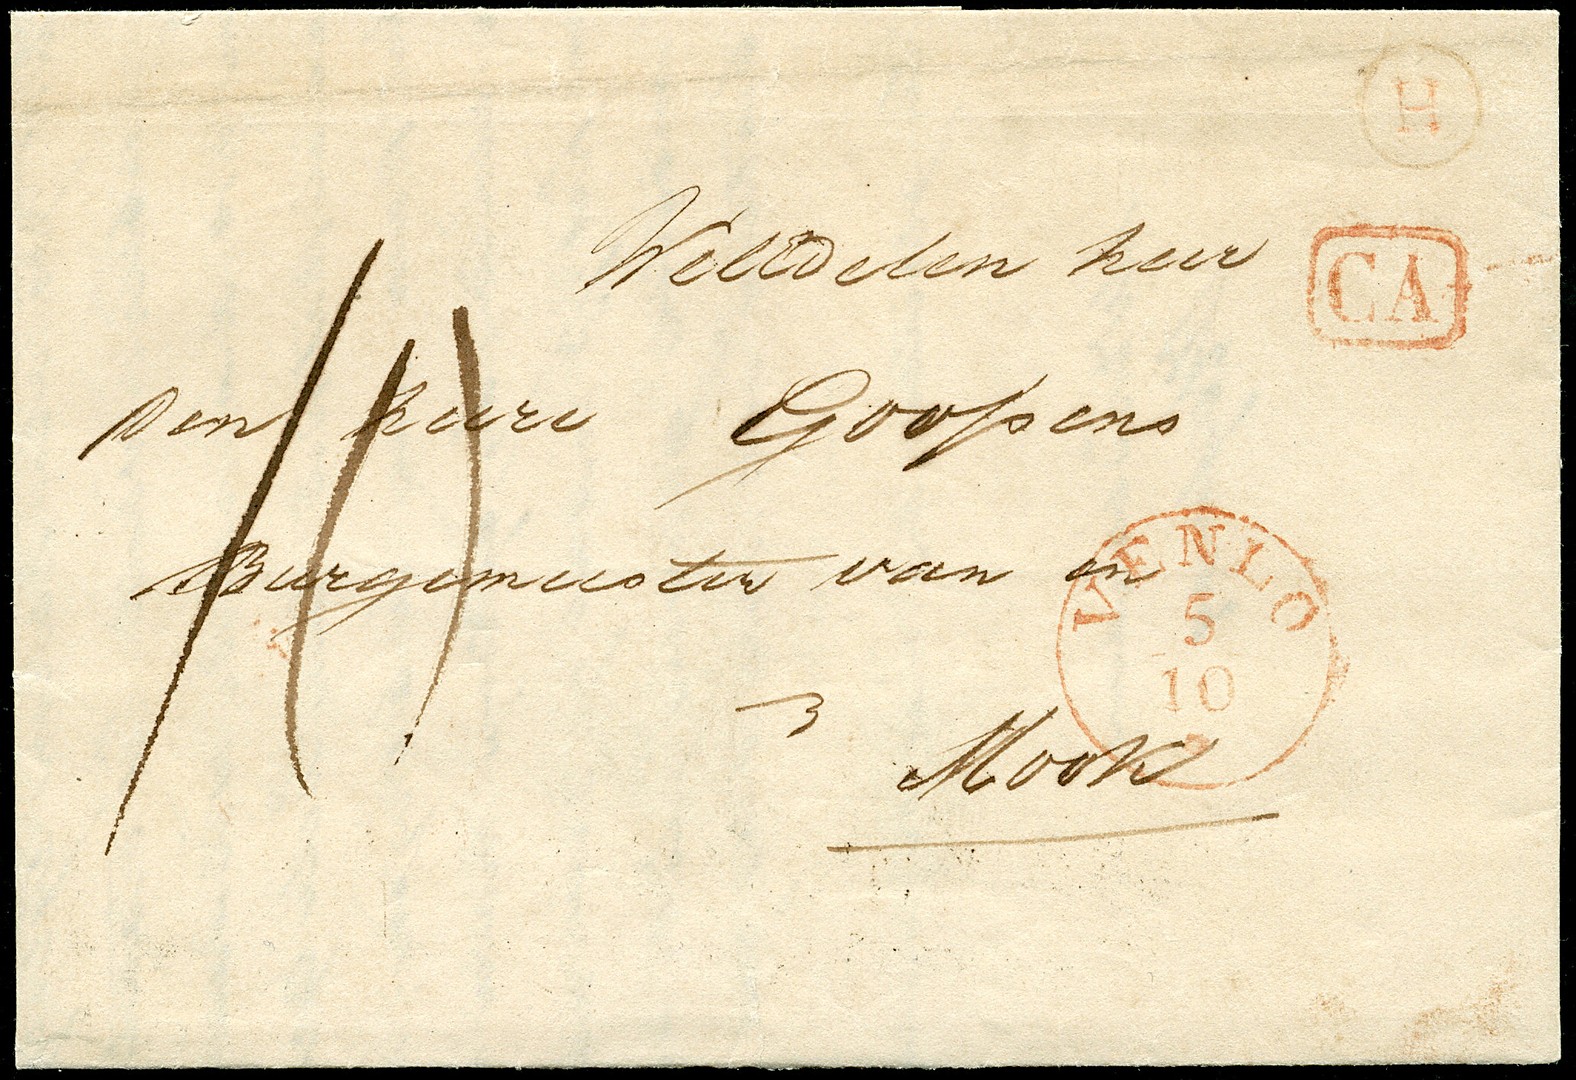 H
CA
WelEdelen heer
den heere Goossens
Burgemeester van en
VENLO
5
10
's
Mook
10